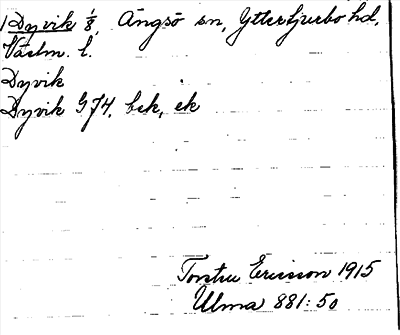 Dyvik 1/8, Ängsö sn, Yttertjurbo hd,
Västm. l.
Dyvik
Dyvik G74, bek, ek
Torsten Ericsson 1915
Ulma 881:50